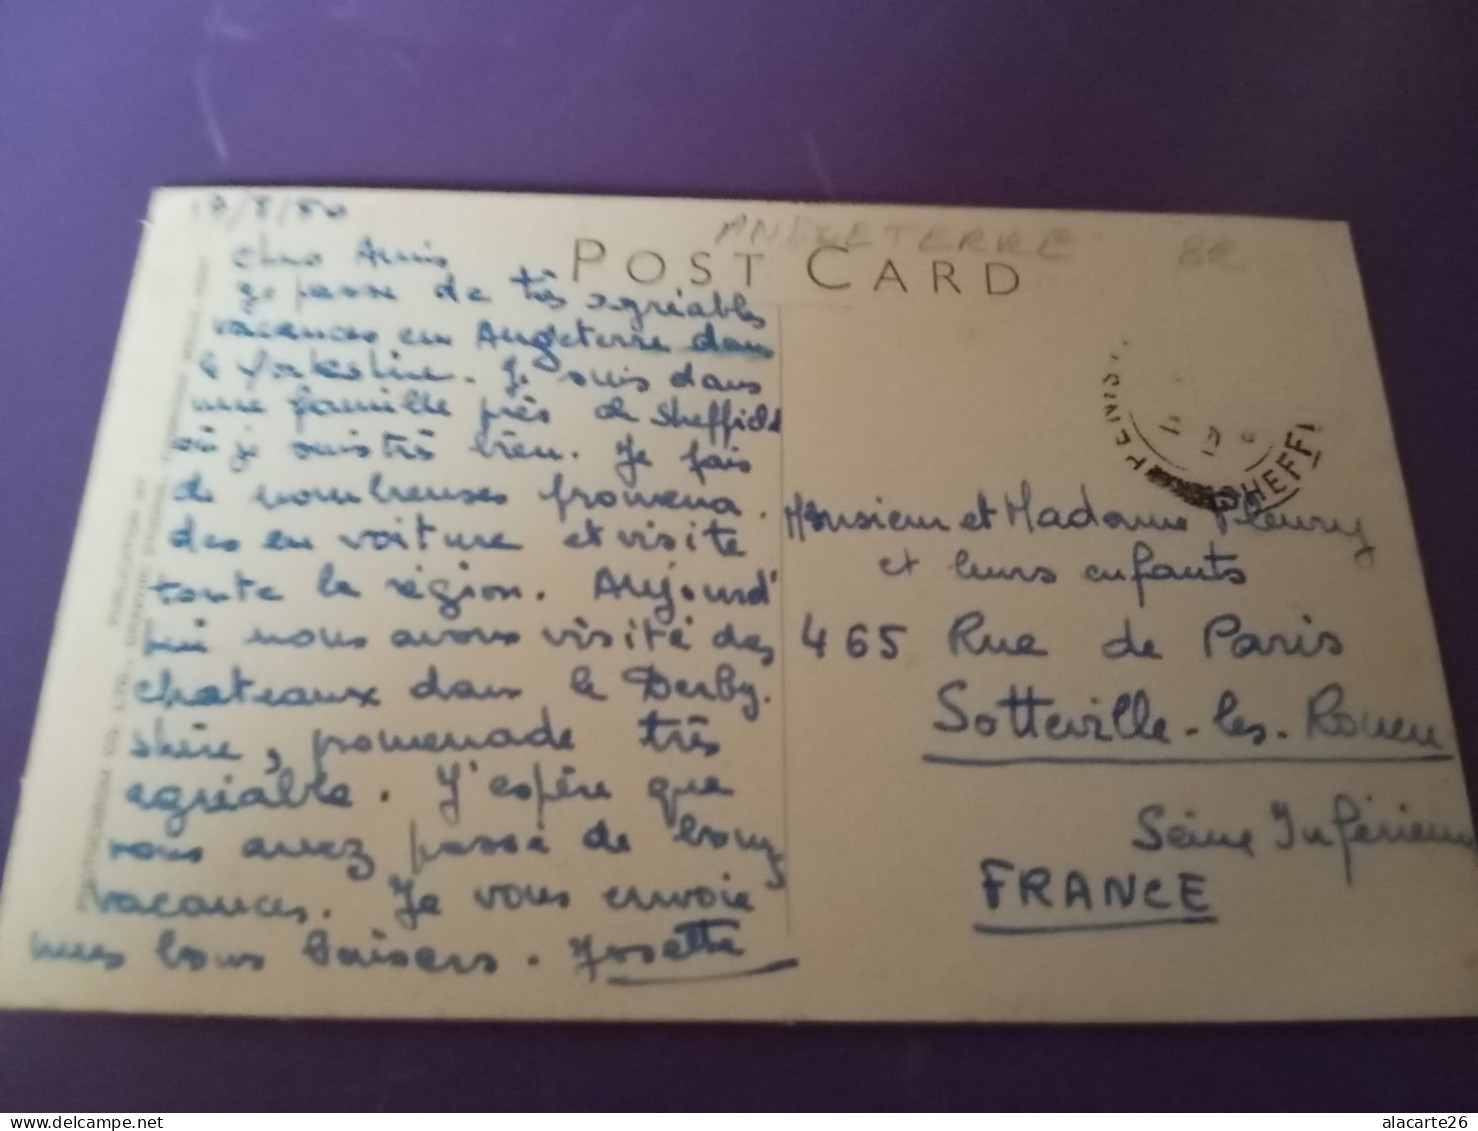 17/8/50
ANGLETERRE
8€
POST CARD
chers Amis
Je passe de très agréables
vacances en Angleterre dans
le Yorkshire. Je suis dans
une famille près de Sheffield
où je suis très bien. Je fais
de nombreuses promena.
des en voiture et visite
toute la région. Aujourd'
hui nous avons visité des
chateaux dans le Derby.
shire, promenade très
agréable. J'espère que
vous avez passé de bonnes
vacances. Je vous envoie
mes bons baisers. Josette
SHEFFI
Monsieur et Madame Fleury
et leurs enfants
465 Rue de Paris
Sotteville-les-Rouen
Seine Inférieure
FRANCE
alacarte26